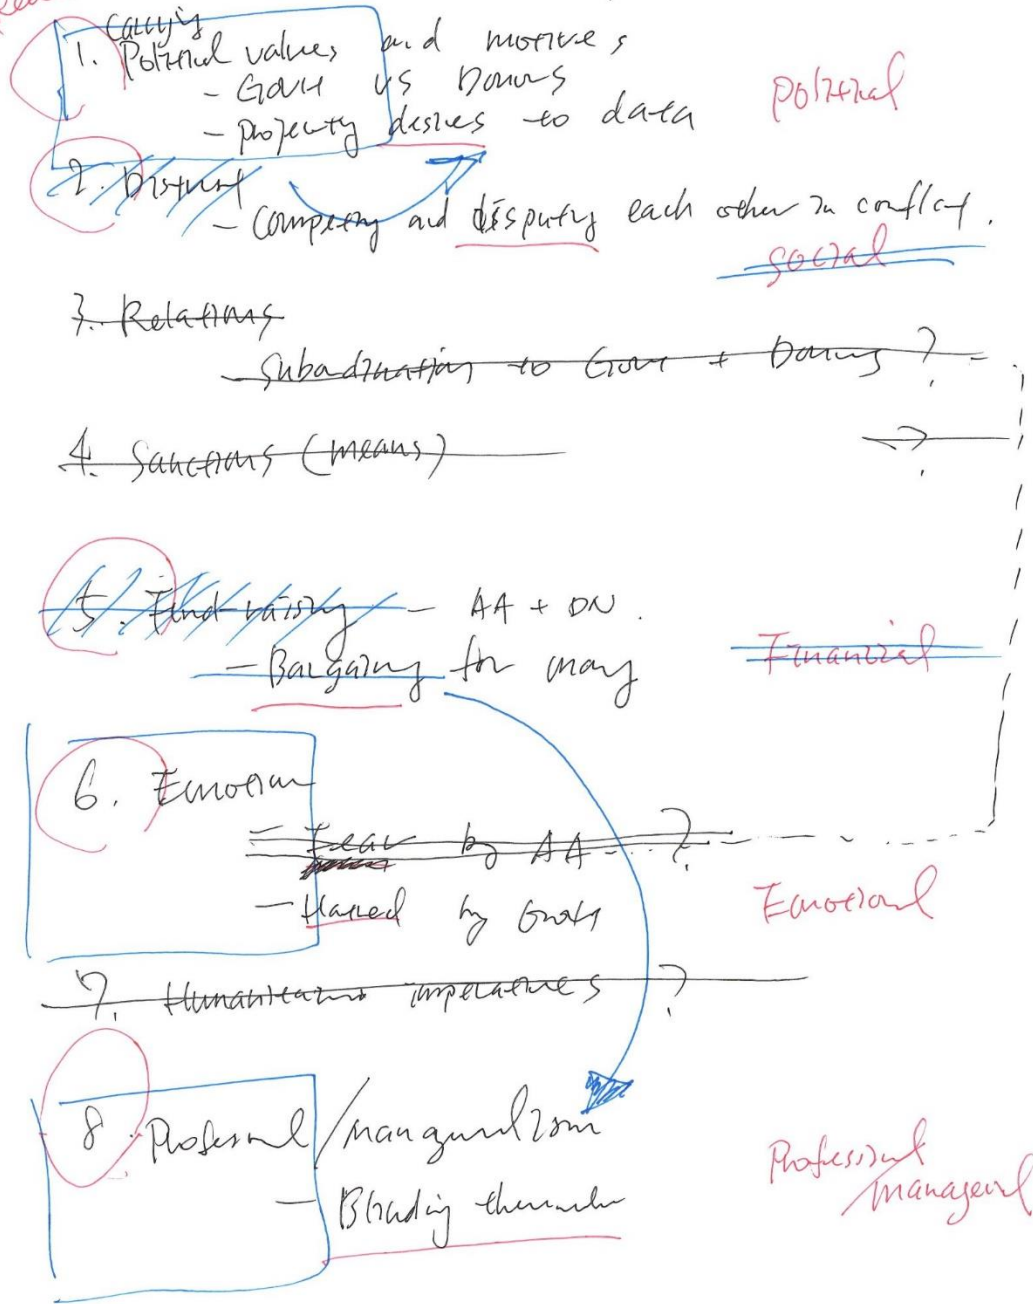 Carrying
1. Political values and motives
- Govt vs Donors
- projecting desires to data
Political
2. Distrust
- Competing and disputing each other in conflict.
Social
3. Relations
- Subordination to Govt + Donors ?
4. Sanctions (means) ?
5. Fund-raising - AA + DN.
- Bargaining for money
Financial
6. Emotion
- Fear by AA ?
- Hatred by Govts
Emotional
7. Humanitarian imperatives ?
8. Professional/managerialism
- Blinding themselves
Professional
/managerial